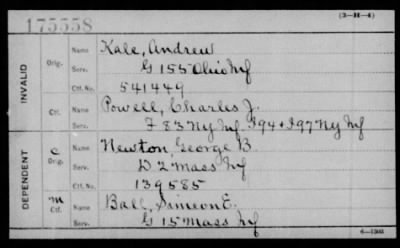 175558
(3-H-4)
INVALID
Orig.
Name Kale, Andrew
Serv. G 155 Ohio Inf
Ctf. No. 541449
Ctf.
Name Powell, Charles J.
Serv. F 83 Ny Inf. I 94 + I 97 Ny Inf
DEPENDENT
C
Orig.
Name Newton, George B.
Serv. D 2 Mass Inf
Ctf. No. 139585
m
Ctf.
Name Ball, Simeon E.
Serv. G 15 Mass Inf
6-1303